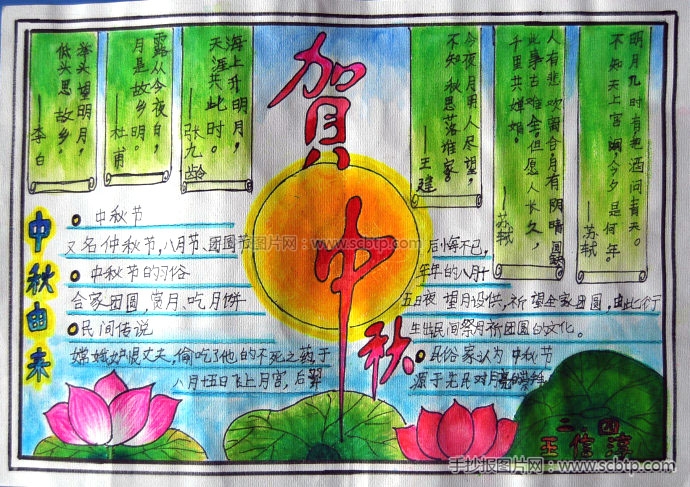 贺中秋
举头望明月，
低头思故乡。
——李白
露从今夜白，
月是故乡明。
——杜甫
海上升明月，
天涯共此时。
——张九龄
今夜月明人尽望，
不知秋思落谁家。
——王建
人有悲欢离合月有阴晴圆缺
此事古难全但愿人长久，
千里共婵娟。
——苏轼
明月几时有把酒问青天。
不知天上宫阙，今夕是何年。
——苏轼
中秋由来
中秋节
又名仲秋节，八月节、团圆节
中秋节的习俗
合家团圆，赏月、吃月饼
民间传说
嫦娥妒恨丈夫，偷吃了他的不死之药于
八月十五日飞上月宫，后羿
后悔不已，
年年的八月十
五日夜望月设供，祈望全家团圆，由此衍
生出民间祭月祈团圆的文化。
民俗家认为中秋节
源于先民对月亮的
二.四
王信
手抄报图片网：www.scbtp.com
手抄报图片网：www.scbtp.com